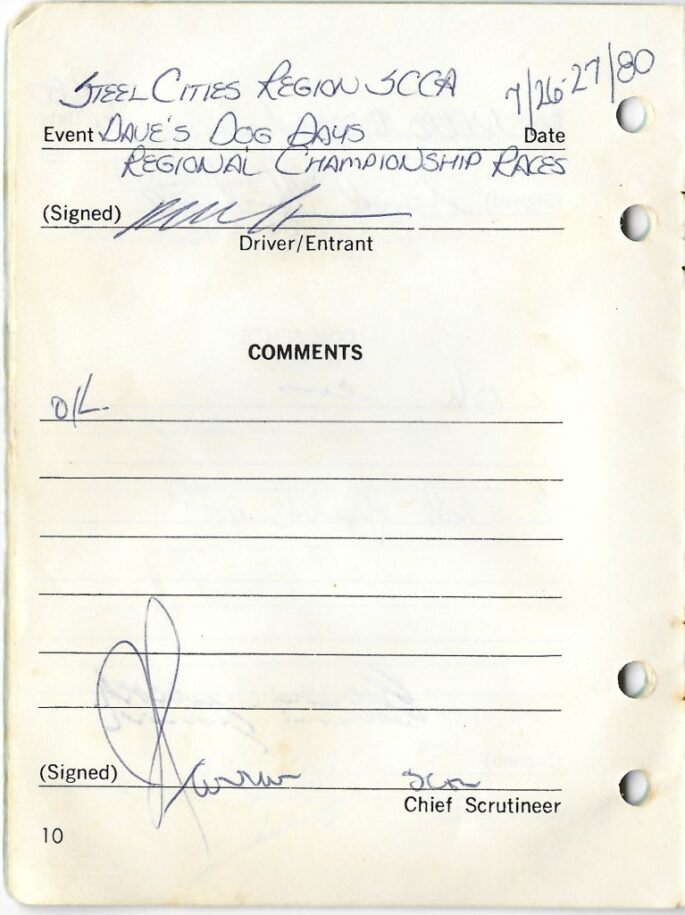 STEEL CITIES REGION SCCA 7/26-27/80
Event DAVE'S DOG DAYS Date
REGIONAL CHAMPIONSHIP RACES
(Signed)
Driver/Entrant
COMMENTS
OK
(Signed)
Chief Scrutineer
10